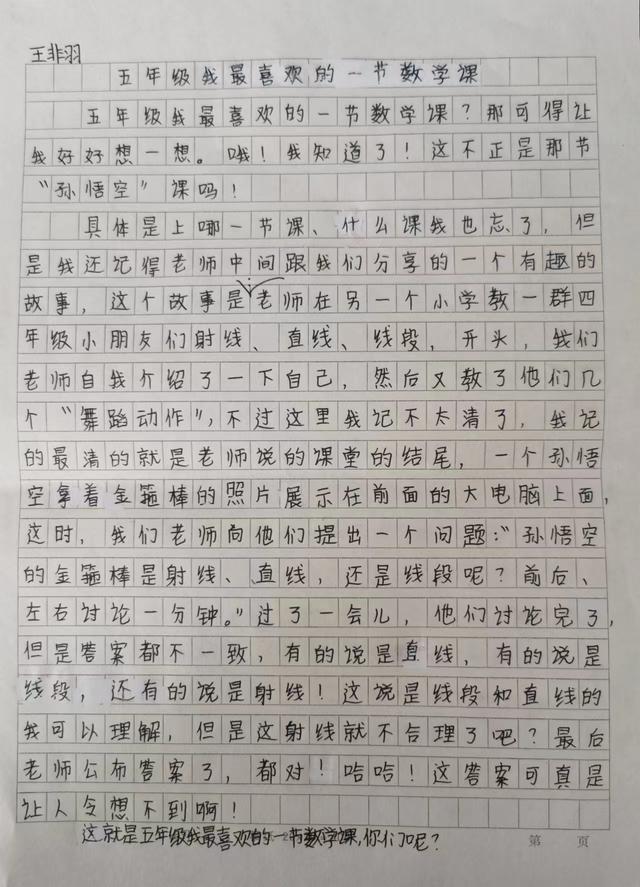 王非羽
五年级我最喜欢的一节数学课
五年级我最喜欢的一节数学课？那可得让
我好好想一想。哦！我知道了！这不正是那节
“孙悟空”课吗！
具体是上哪一节课、什么课我也忘了，但
是我还记得老师中间跟我们分享的一个有趣的
故事，这个故事是老师在另一个小学教一群四
年级小朋友们射线、直线、线段，开头，我们
老师自我介绍了一下自己，然后又教了他们几
个“舞蹈动作”，不过这里我记不太清了，我记
的最清的就是老师说的课堂的结尾，一个孙悟
空拿着金箍棒的照片展示在前面的大电脑上面，
这时，我们老师向他们提出一个问题：“孙悟空
的金箍棒是射线、直线，还是线段呢？前后、
左右讨论一分钟。”过了一会儿，他们讨论完了，
但是答案都不一致，有的说是直线，有的说是
线段，还有的说是射线！这说是线段和直线的
我可以理解，但是这射线就不合理了吧？最后
老师公布答案了，都对！哈哈！这答案可真是
让人令想不到啊！
这就是五年级我最喜欢的一节数学课，你们呢？
第 页